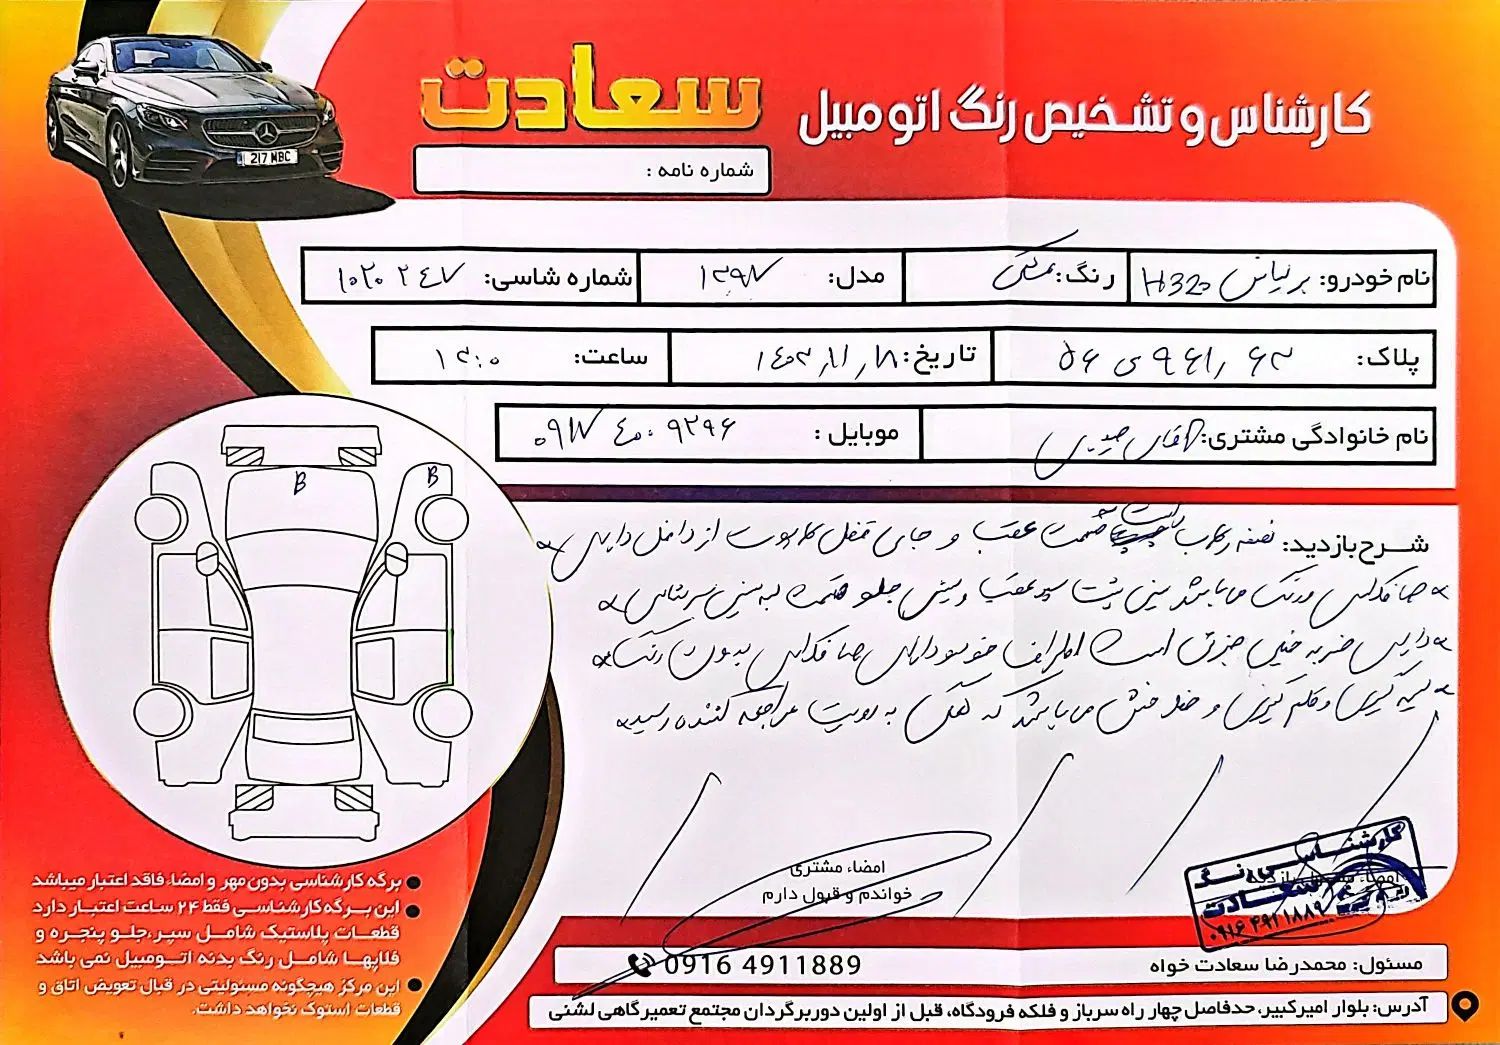 کارشناس و تشخیص رنگ اتومبیل سعادت
شماره نامه :
217 MBC
نام خودرو: بریانس H320 رنگ: مشکی مدل: ۱۳۹۷ شماره شاسی: ۱۰۲۰۲۴۷
پلاک: ۶۳ ۹۶۱ ی ۵۶ تاریخ: ساعت: ۱۳:۰
نام خانوادگی مشتری: آقای موبایل : ۰۹۱۷ ۴۰۰ ۹۲۹۶
B B
شرح بازدید: نصفه رکاب سمت عقب و جای قفل کاپوت از داخل دارای
صافکاری و رنگ می باشد سینی پشت سپر عقب و سینی جلو
دارای ضربه خیلی جزئی است اطراف خودرو دارای صافکاری بدون رنگ
لیسه گیری و قلم گیری و خط و خش می باشد که همگی به رویت مراجعه کننده رسید
امضاء مشتری
خواندم و قبول دارم
کارشناسی رنگ
سعادت
۰۹۱۶ ۴۹۱ ۱۸۸۹
برگه کارشناسی بدون مهر و امضاء فاقد اعتبار میباشد
این برگه کارشناسی فقط ۲۴ ساعت اعتبار دارد
قطعات پلاستیک شامل سپر،جلو پنجره و
قلابها شامل رنگ بدنه اتومبیل نمی باشد
این مرکز هیچگونه مسئولیتی در قبال تعویض اتاق و
قطعات استوک نخواهد داشت.
مسئول: محمدرضا سعادت خواه 0916 4911889
آدرس: بلوار امیرکبیر، حدفاصل چهار راه سرباز و فلکه فرودگاه، قبل از اولین دوربرگردان مجتمع تعمیرگاهی لشنی